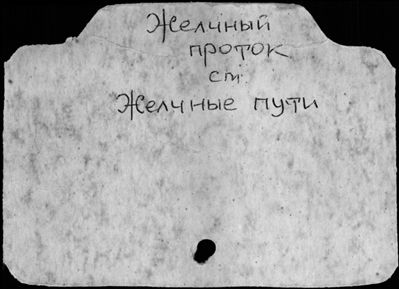 Желчный
проток
см.
Желчные пути